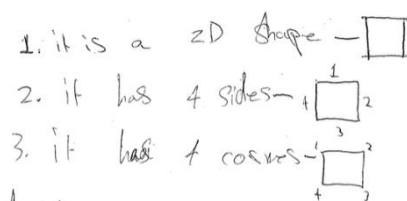 1. it is a 2D shape –
1
2. it has 4 sides– 4 2
3
3. it has 4 cosnes– 1 2
4 3